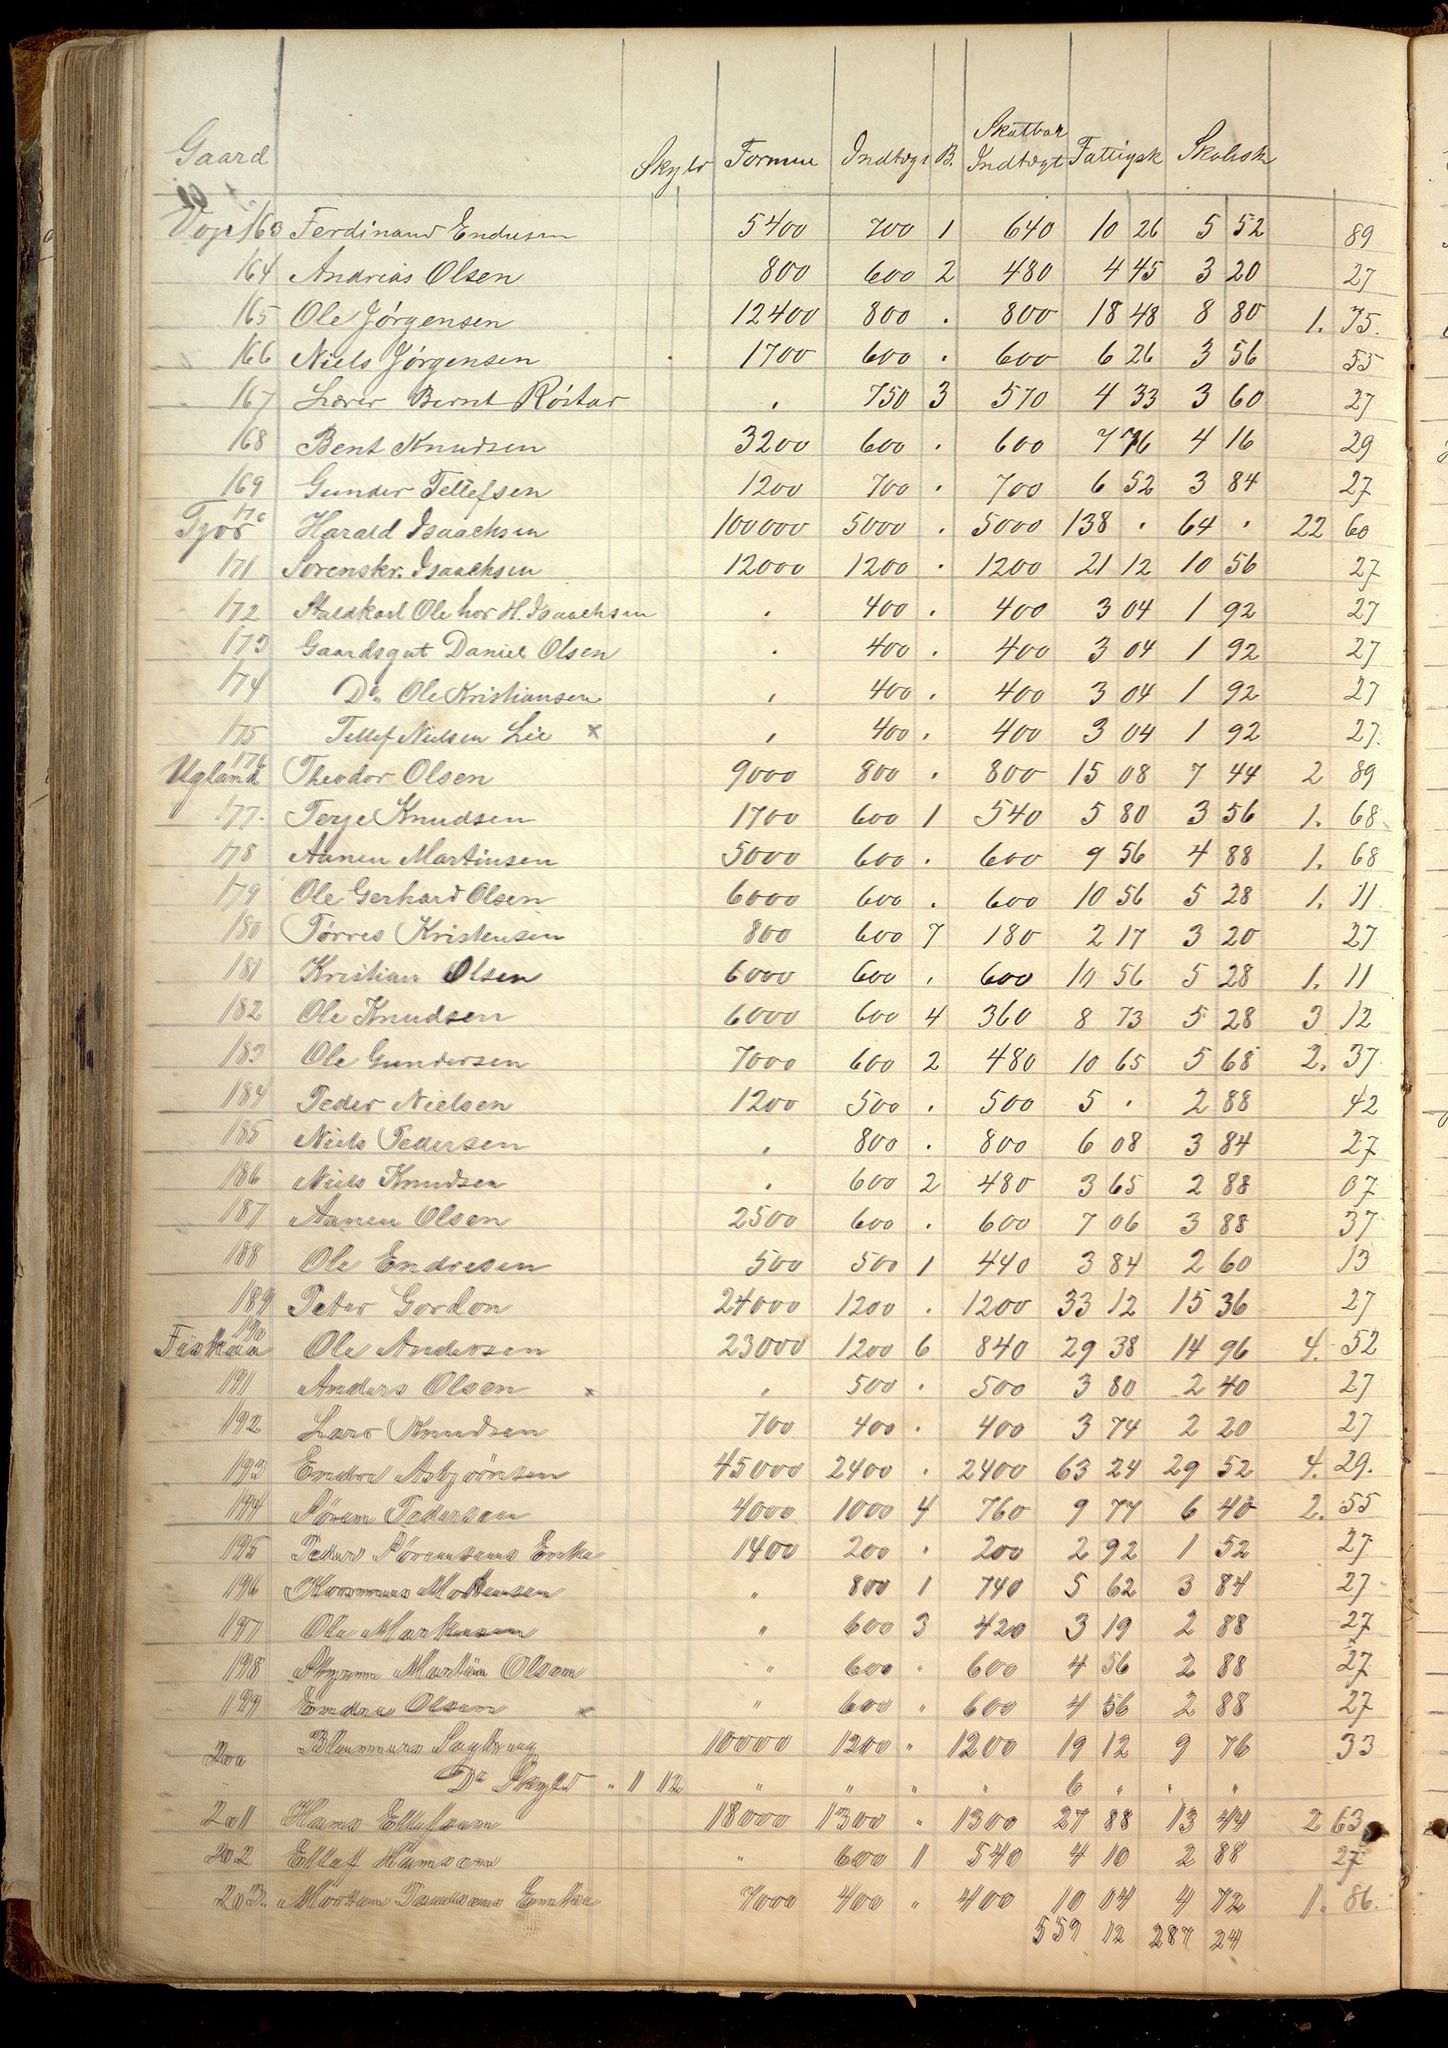 Gaard Skyld Formue Indtægt B. Skatbar Indtægt Fattigsk Skolesk
Voje 163 Ferdinand Endresen 5400 700 1 640 10 26 5 52 89
164 Andreas Olsen 800 600 2 480 4 45 3 20 27
165 Ole Jørgensen 12400 800 . 800 18 48 8 80 1. 75.
166 Niels Jørgensen 1700 600 . 600 6 26 3 56 55
167 Lærer Bernt Röstar . 750 3 570 4 33 3 60 27
168 Bent Knudsen 3200 600 . 600 7 76 4 16 29
169 Gunder Tellefsen 1200 700 . 700 6 52 3 84 27
Tjos 170 Harald Isaachsen 100000 5000 . 5000 138 . 64 . 22 60
171 Sorenskr. Isaachsen 12000 1200 . 1200 21 12 10 56 27
172 Staldkarl Ole hos H. Isaachsen . 400 . 400 3 04 1 92 27
173 Gaardsgut Daniel Olsen . 400 . 400 3 04 1 92 27
174 Do Ole Kristiansen . 400 . 400 3 04 1 92 27
175 Tellef Nielsen Lie x . 400 . 400 3 04 1 92 27.
Ugland 176 Theodor Olsen 9000 800 . 800 15 08 7 44 2 89
177. Terje Knudsen 1700 600 1 540 5 80 3 56 1. 68.
178 Aanen Martinsen 5000 600 . 600 9 56 4 88 1. 68
179 Ole Gerhard Olsen 6000 600 . 600 10 56 5 28 1. 11
180 Törres Kristensen 800 600 7 180 2 17 3 20 27
181 Kristian Olsen 6000 600 . 600 10 56 5 28 1. 11
182 Ole Knudsen 6000 600 4 360 8 73 5 28 3 12
183 Ole Gundersen 7000 600 2 480 10 65 5 68 2. 37
184 Peder Nielsen 1200 500 . 500 5 . 2 88 42
185 Niels Pedersen . 800 . 800 6 08 3 84 27
186 Niels Knudsen . 600 2 480 3 65 2 88 07
187 Aanen Olsen 2500 600 . 600 7 06 3 88 37
188 Ole Endresen 500 500 1 440 3 84 2 60 13
189 Peter Gordon 24000 1200 . 1200 33 12 15 36 27
Fiskaa 190 Ole Andersen 23000 1200 6 840 29 38 14 96 4. 52
191 Anders Olsen x " 500 . 500 3 80 2 40 27
192 Lars Knudsen 700 400 . 400 3 74 2 20 27
193 Endre Asbjörnsen 45000 2400 . 2400 63 24 29 52 4. 29.
194 Sören Pedersen 4000 1000 4 760 9 77 6 40 2. 55
195 Peder Sörensens Enke 1400 200 " 200 2 92 1 52 27
196 Mortensen " 800 1 740 5 62 3 84 27
197 Ole Markusen " 600 3 420 3 19 2 88 27
198 Martin Olsen " 600 " 600 4 56 2 88 27
199 Endre Olsen x " 600 " 600 4 56 2 88 27
200 Blenmura Sagbrug 10000 1200 " 1200 19 12 9 76 33
Do Skyld " 11 12 " " " " 6 " " "
201 Hans Ellefsen 18000 1300 " 1300 27 88 13 44 2 63
202 Ellef Hansen " 600 1 540 4 10 2 88 27
203. Morten Enke 7000 400 " 400 10 04 4 72 1. 86.
559 12 287 24